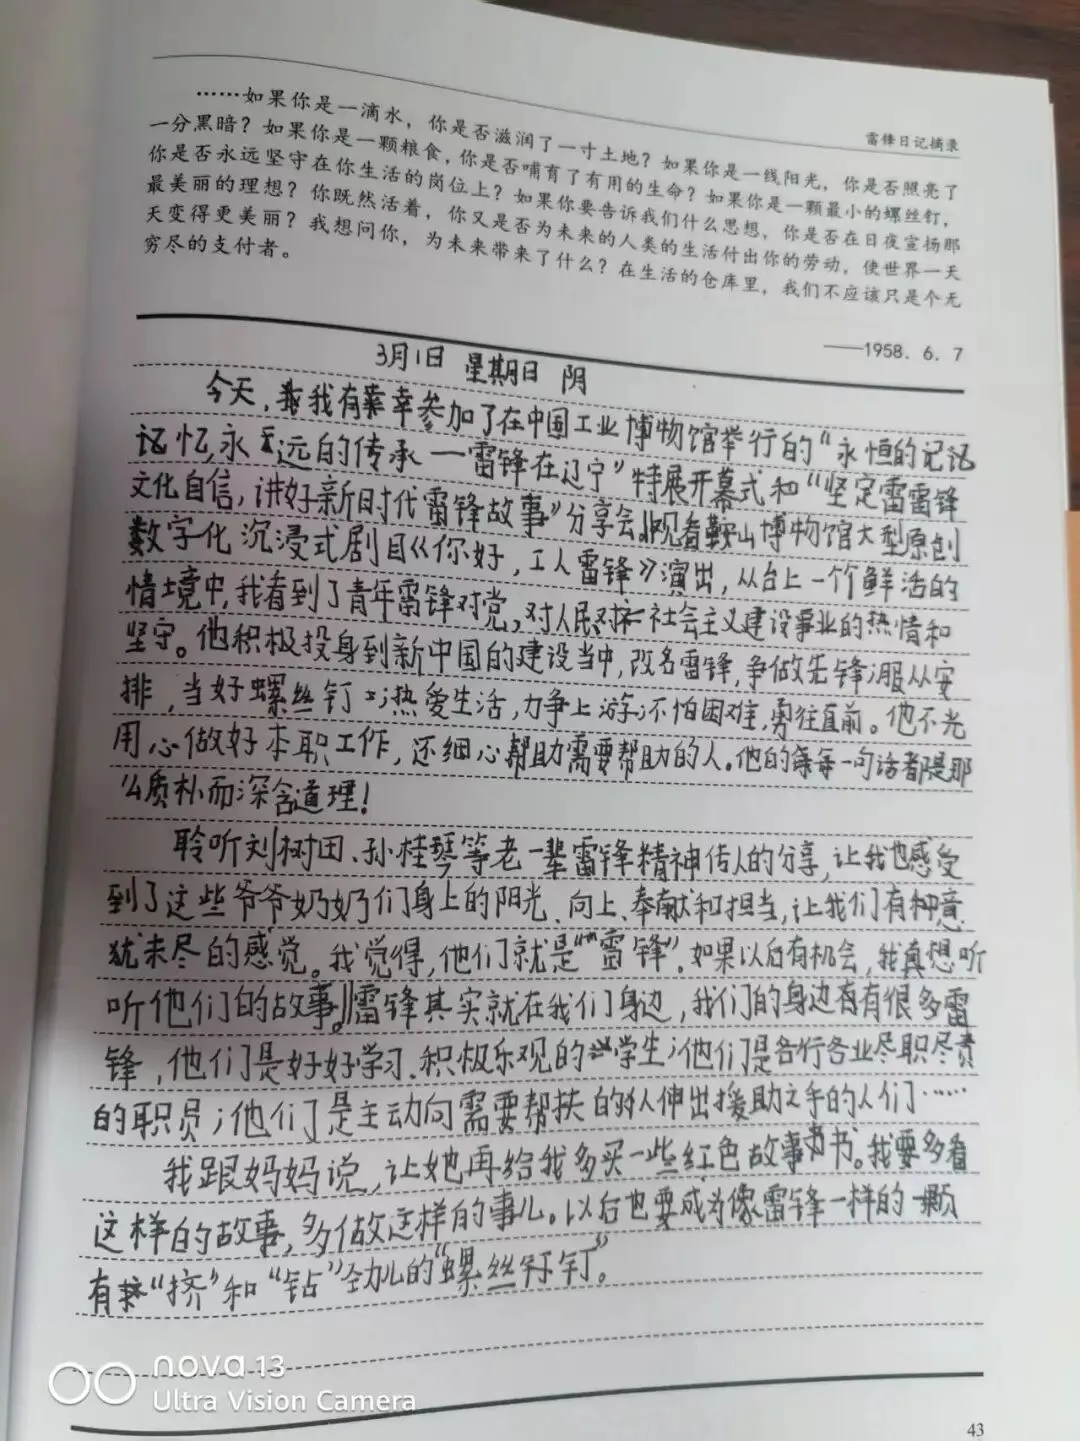 雷锋日记摘录
……如果你是一滴水，你是否滋润了一寸土地？如果你是一线阳光，你是否照亮了
一分黑暗？如果你是一颗粮食，你是否哺育了有用的生命？如果你是一颗最小的螺丝钉，
你是否永远坚守在你生活的岗位上？如果你要告诉我们什么思想，你是否在日夜宣扬那
最美丽的理想？你既然活着，你又是否为未来的人类的生活付出你的劳动，使世界一天
天变得更美丽？我想问你，为未来带来了什么？在生活的仓库里，我们不应该只是个无
穷尽的支付者。
——1958.6.7
3月1日 星期日 阴
今天，我有幸参加了在中国工业博物馆举行的“永恒的记
记忆，永远的传承—雷锋在辽宁”特展开幕式和“坚定雷锋
文化自信，讲好新时代雷锋故事”分享会。观看鞍山博物馆大型原创
数字化沉浸式剧目《你好，工人雷锋》演出，从台上一个个鲜活的
情境中，我看到了青年雷锋对党，对人民对社会主义建设事业的热情和
坚守。他积极投身到新中国的建设当中，改名雷锋，争做先锋；服从安
排，当好螺丝钉；热爱生活，力争上游；不怕困难，勇往直前。他不光
用心做好本职工作，还细心帮助需要帮助的人。他的每一句话都是那
么质朴而深含道理！
聆听刘树田、孙桂琴等老一辈雷锋精神传人的分享，让我也感受
到了这些爷爷奶奶们身上的阳光、向上、奉献和担当，让我们有种意
犹未尽的感觉。我觉得，他们就是“雷锋”。如果以后有机会，我真想听
听他们的故事。雷锋其实就在我们身边，我们的身边有很多雷
锋，他们是好好学习、积极乐观的学生；他们是各行各业尽职尽责
的职员；他们是主动向需要帮扶的人伸出援助之手的人们……
我跟妈妈说，让她再给我多买一些红色故事书。我要多看
这样的故事，多做这样的事儿。以后也要成为像雷锋一样的一颗
有“挤”和“钻”劲儿的“螺丝钉”。
nova 13
Ultra Vision Camera
43